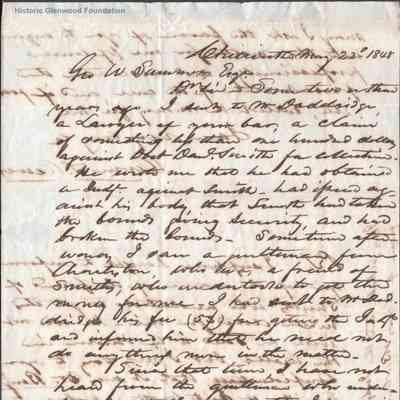 Historic Glenwood Foundation
Chillicothe May 23d 1848
Geo W Summers Esqr
Dr Sir: Some two or three
years ago I sent to Mr Doddridge
a Lawyer of your bar, a claim
of something less than one hundred dollars
against Doct Danl. Smith for collection.
He wrote me that he had obtained
a Judt. against Smith - had ca
against his body that Smith had taken
the bounds giving security, and had
broken the bounds - Sometime after-
wards I saw a gentleman from
Charleston, who was a friend of
Smith, who undertook to get the
money for me - I had sent to Mr Dod-
dridge his fee (5$) for getting the Judt
and informed him that he need not
do anything more in the matter.
Since that time, I have not
heard from the gentleman who under-